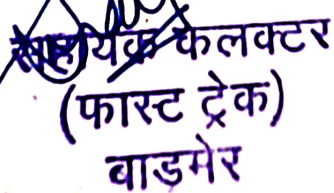 सहायक कलक्टर
(फास्ट ट्रेक)
बाड़मेर